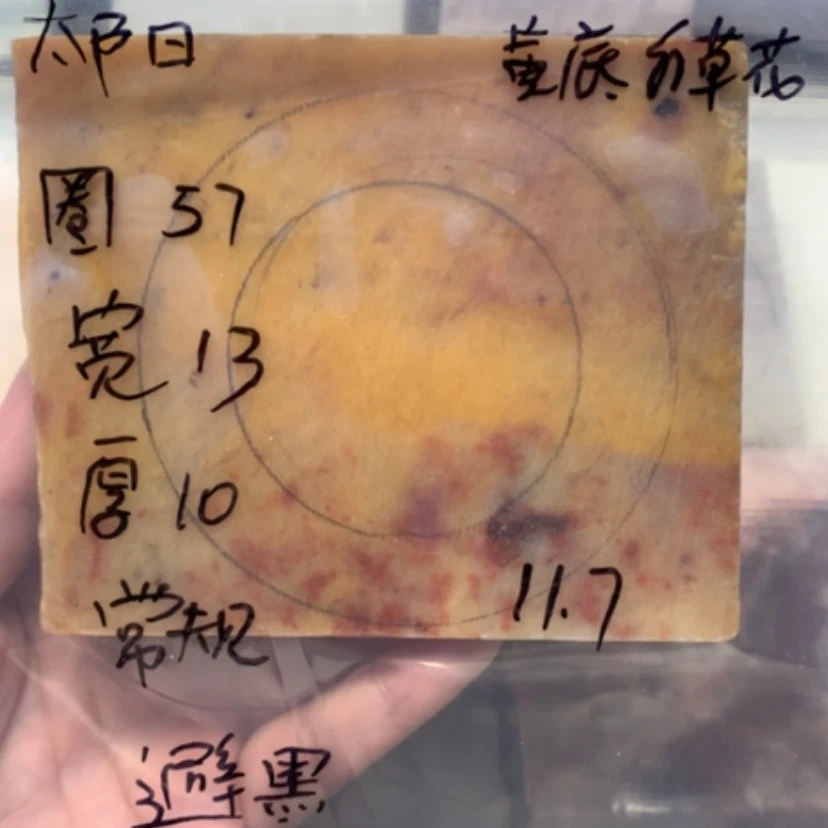 黄底水草花
圈 57
宽 13
厚 10
11.7
常规
避黑